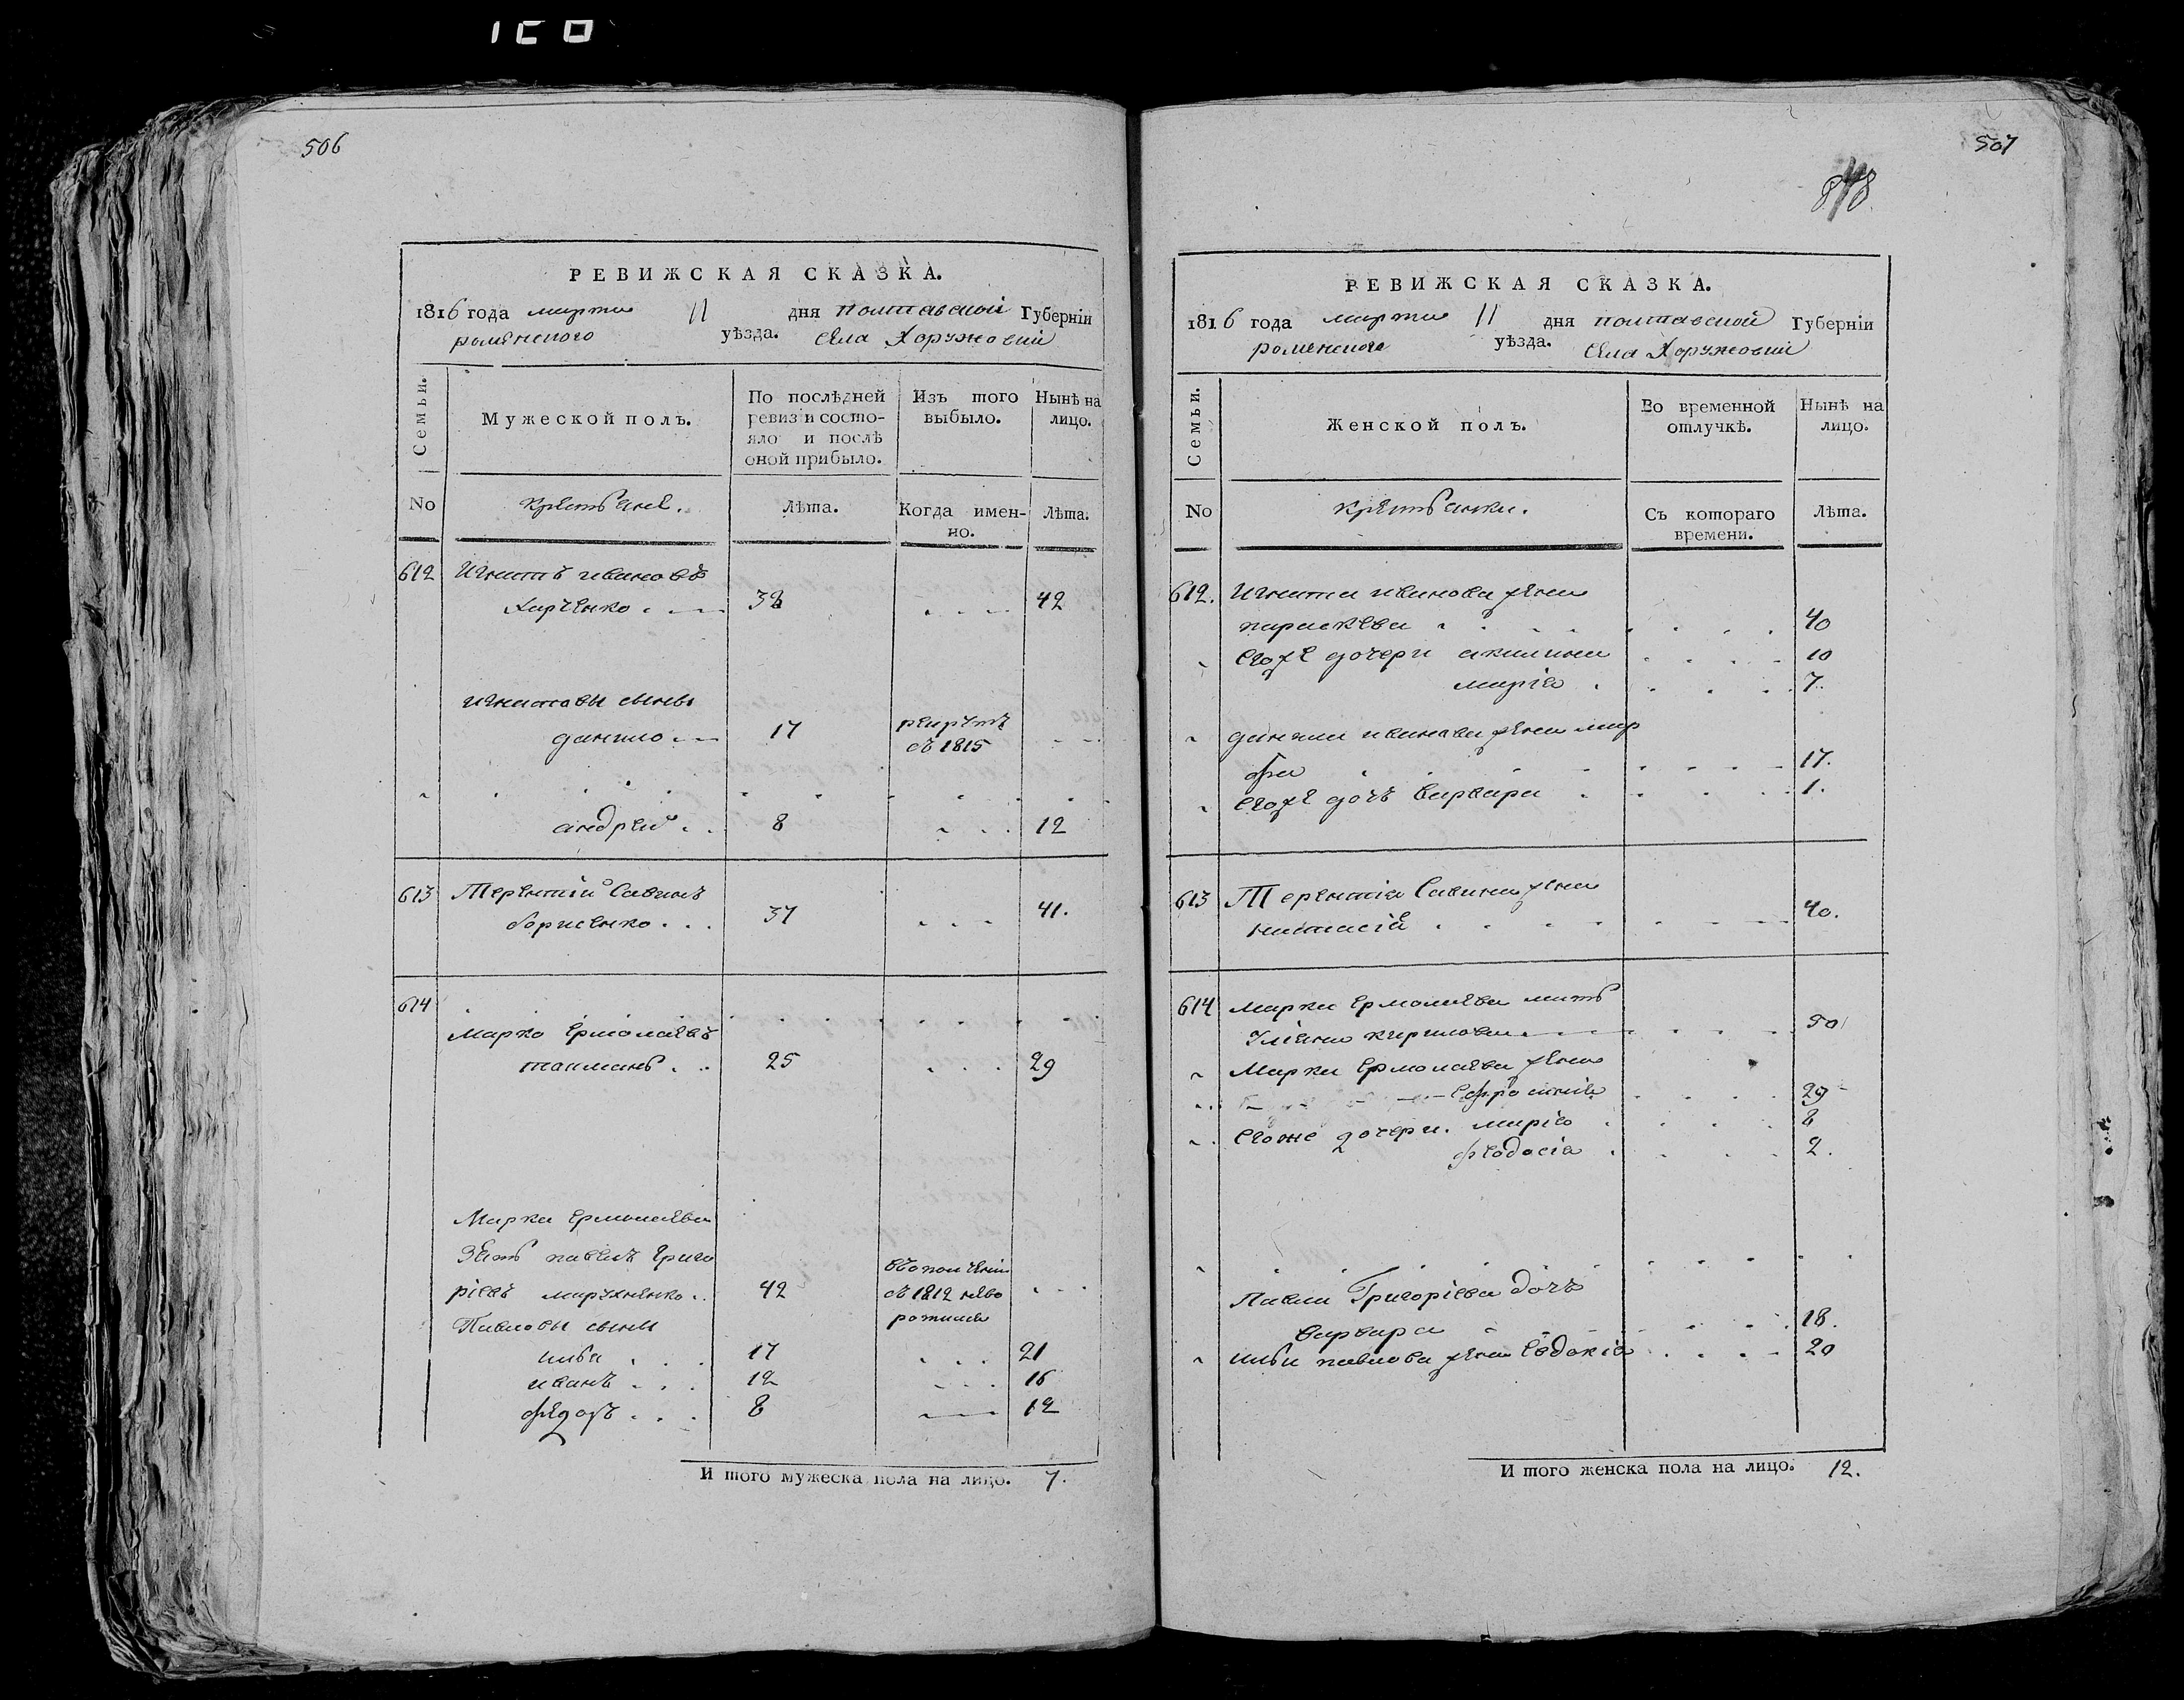 506
РЕВИЖСКАЯ СКАЗКА.
1816 года марта 11 дня полтавской Губерніи
роменского уѣзда. села Хоружовки
Семьи.
Мужеской полъ.
По послѣдней ревизіи состояло и послѣ оной прибыло.
Изъ того выбыло.
Нынѣ на лицо.
No
крестьяне.
Лѣта.
Когда именно.
Лѣта.
612 Игнатъ ивановъ
Харченко 38 42
игнатовы сыны
данило 17 рекрутъ
съ 1815
андрей 8 12
613 Терентій Савинъ
борисенко 37 41.
614
Марко Ермолаевъ
25 29
Марка Ермолаева
Зять павелъ Григо
ріевъ 42 въ ополченіи
съ 1812 нево
ротился
Павловы сыны
илья 17 21
иванъ 12 16
федоръ 8 12
И того мужеска пола на лицо. 7.
507
РЕВИЖСКАЯ СКАЗКА.
1816 года марта 11 дня полтавской Губерніи
роменского уѣзда. села Хоружовки
Семьи.
Женской полъ.
Во временной отлучкѣ.
Нынѣ на лицо.
No
крестьянки.
Съ котораго времени.
Лѣта.
612. Игната иванова жена
параскева 40
Егоже дочери акилина 10
марія 7.
данила жена мар
фа 17.
Егоже дочь варвара 1.
613 Терентія Савина жена
настасія 40.
614 Марка Ермолаева мать
Уліяна кирилова 50
Марка Ермолаева жена
Ефросинія 29
Егоже дочери. марія 8
феодосія 2.
Павла Григоріева дочь
варвара 18.
ильи павлова жена Евдокія 20
И того женска пола на лицо. 12.